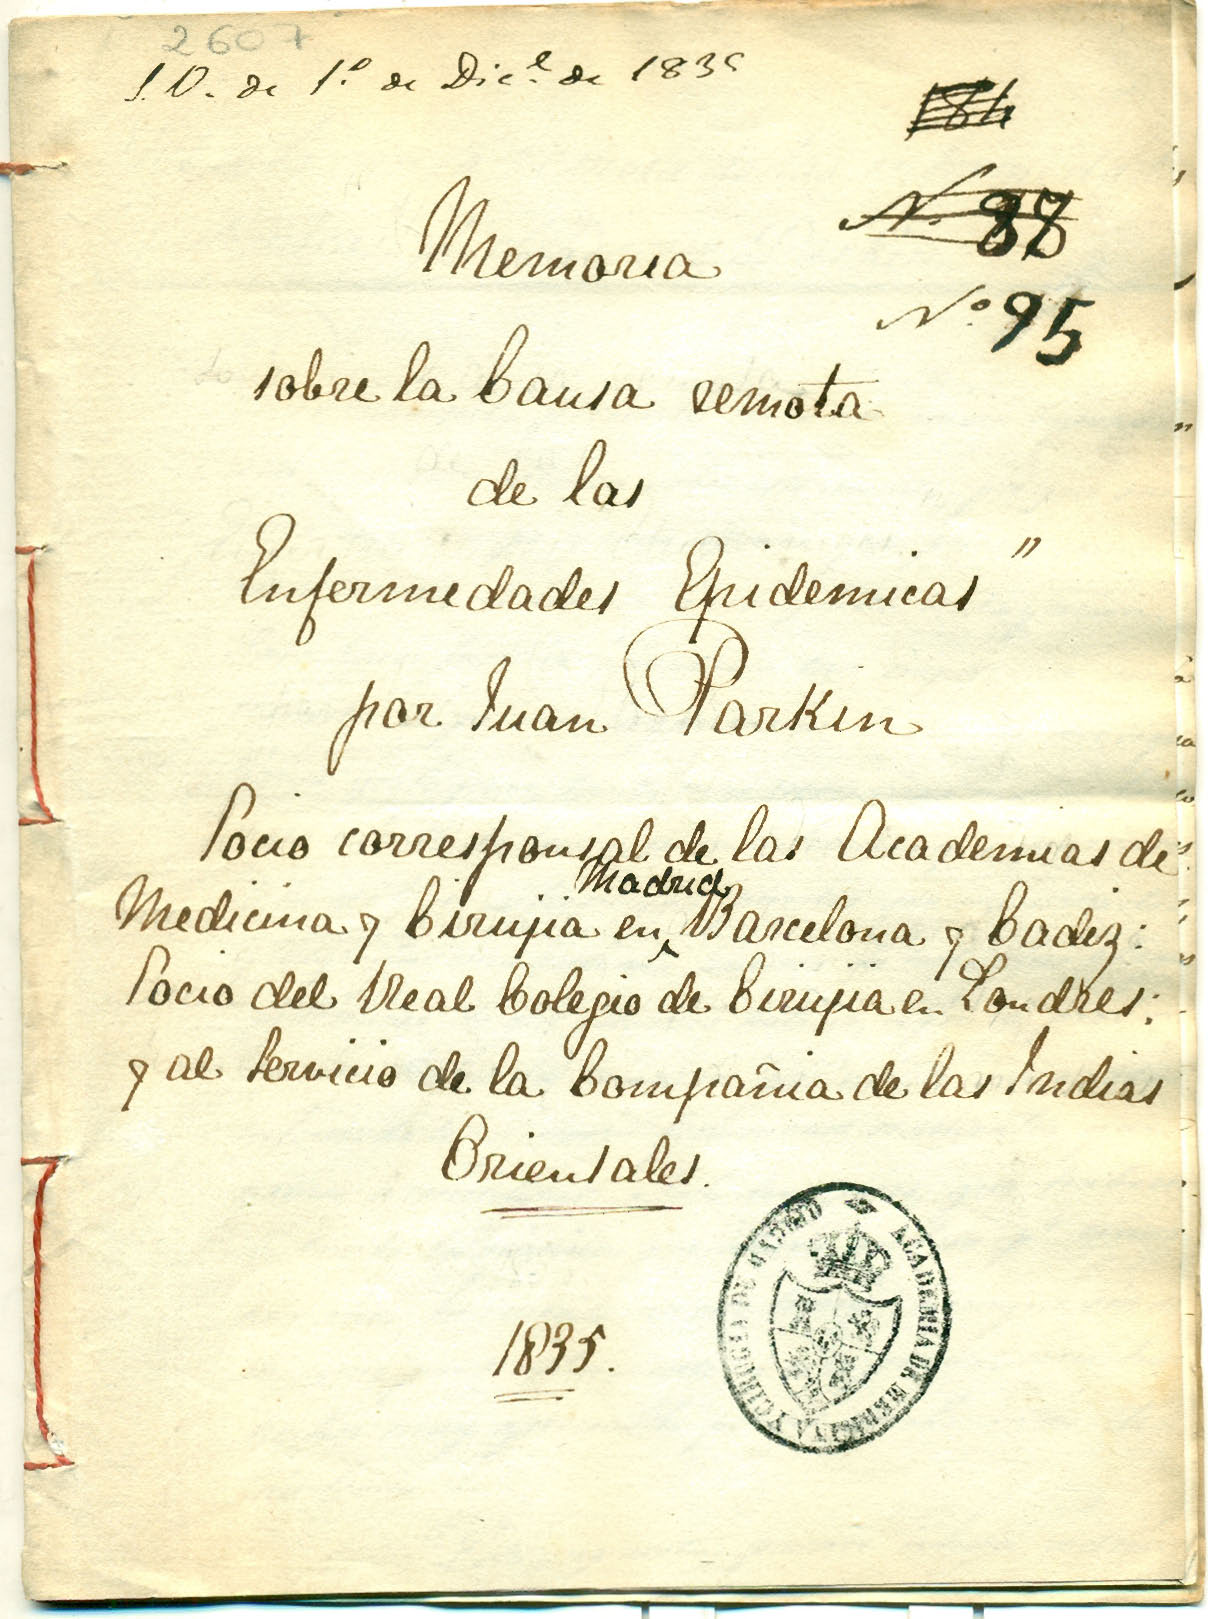 2607
S. O. de 1.º de Dic.e de 1835
184
N. 88
Nº 95
Memoria
sobre la Causa remota
de las
Enfermedades Epidemicas"
por Juan Parkin
Socio corresponsal de las Academias de
Madrid
Medicina y Cirujia en Barcelona y Cadiz:
Socio del Real Colegio de Cirujia en Londres:
y al Servicio de la Compañia de las Indias
Orientales.
1835.
ACADEMIA DE MEDICINA Y CIRUGIA DE MADRID